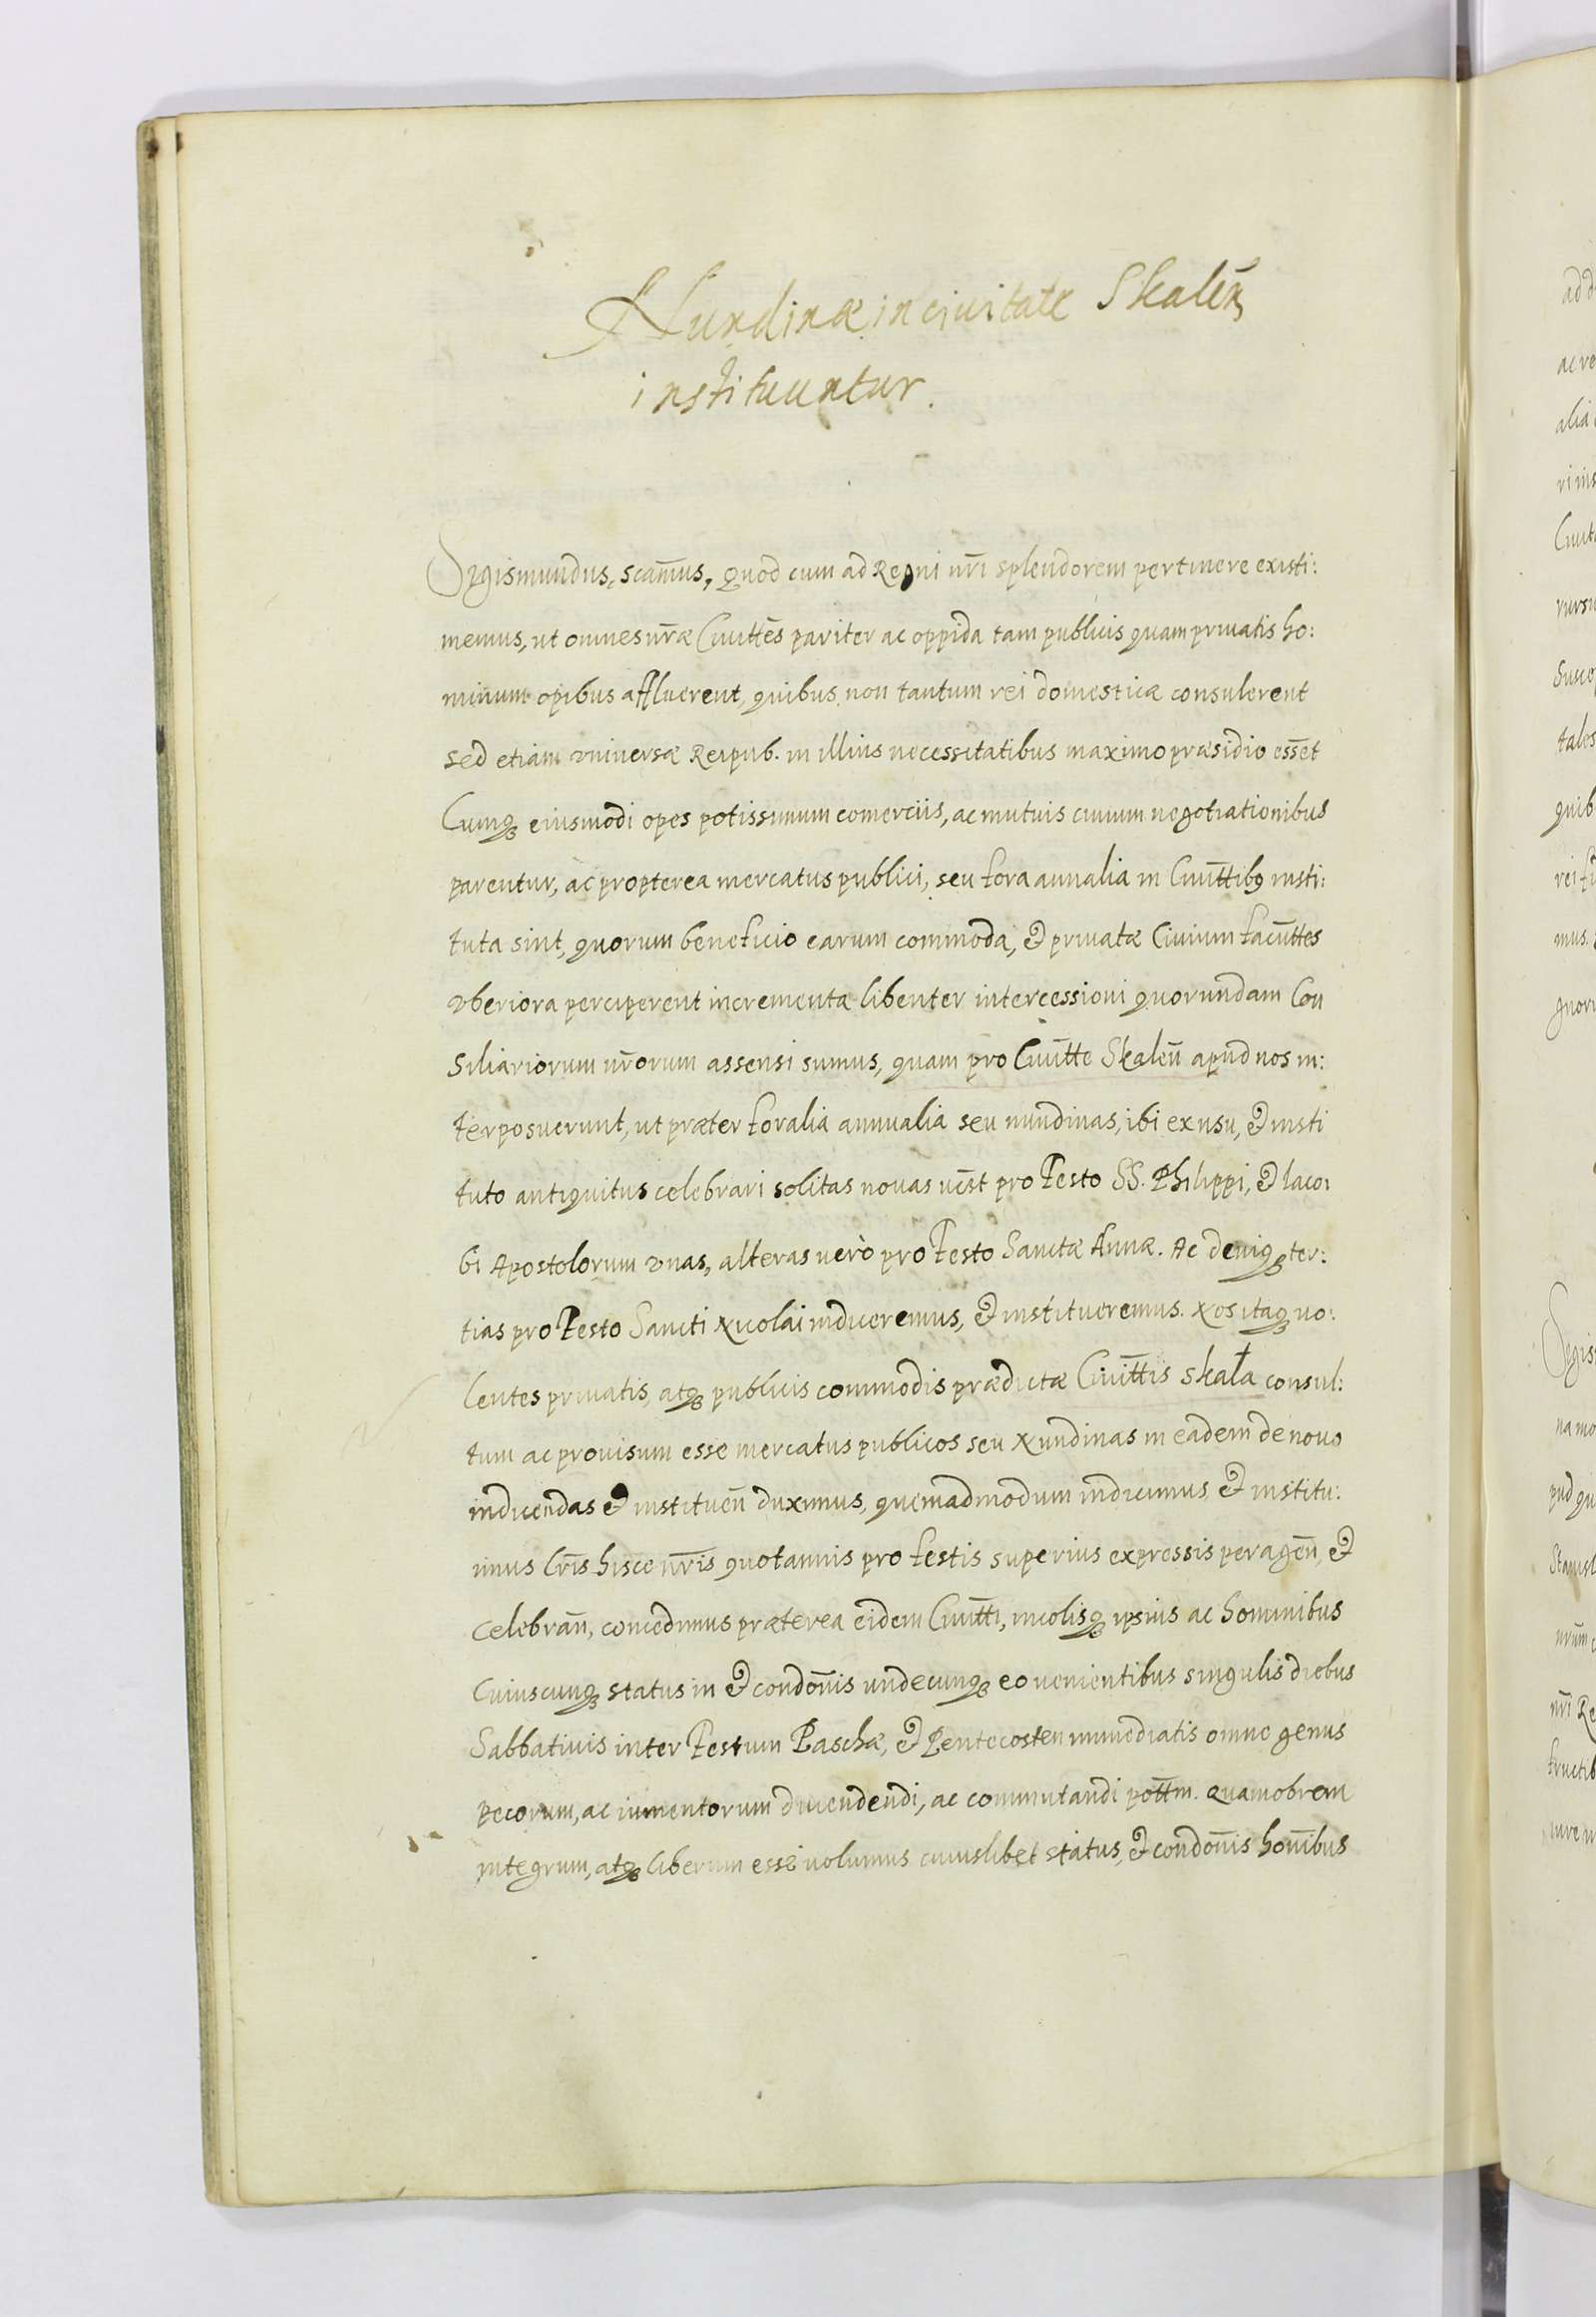 Nundinæ in ciuitate Skalen̄
instituuntur.
Sigismundus, scam̄us, Quod cum ad Regni nr̄i splendorem pertinere existi:
memus, ut omnes nr̄æ Ciuittēs pariter ac oppida tam publicis quam priuatis ho:
minum opibus affluerent, quibus non tantum rei domesticæ consulerent
sed etiam vniversæ Reipub. in illius necessitatibus maximo præsidio essēt
Cumq3 eiusmodi opes potissimum comerciis, ac mutuis ciuium negotiationibus
parentur, ac propterea mercatus publici, seu fora annalia in Ciuīttib9 insti:
tuta sint, quorum beneficio earum commoda, & priuatæ Ciuium facūttes
vberiora perciperent incrementa libenter intercessioni quorundam Con
siliariorum nr̄orum assensi sumus, quam pro Ciuītte Skalen̄ apud nos in:
terposuerunt, ut præter foralia annualia seu nundinas, ibi ex usu, & insti
tuto antiquitus celebrari solitas nouas vēst pro Festo SS. Philippi, & Iaco:
bi Apostolorum vnas, alteras verò pro Festo Sanctæ Annæ. Ac deniq3 ter:
tias pro Festo Sancti Nicolai induceremus, & institueremus. Nos itaq3 uo:
lentes priuatis, atq3 publicis commodis prædictæ Ciuīttis Skała consul:
tum ac prouisum esse mercatus publicos seu Nundinas in eadem de nouo
inducendas & instituen̄ duximus, quemadmodum inducimus & institu:
imus lr̄is hisce nr̄is quotannis pro festis superius expressis peragen̄, &
celebran̄, concedimus præterea eidem Ciuītti, incolisq3 ipsius ac hominibus
Cuiuscunq3 status in & condon̄is undecunq3 eo uenientibus singulis diebus
Sabbatinis inter Festum Paschæ, & Pentecosten immediatis omne genus
pecorum, ac iumentorum diuendendi, ac commutandi pott̄m. Quamobrem
integrum, atq3 liberum esse uolumus cuiuslibet status, & condon̄is hon̄ibus